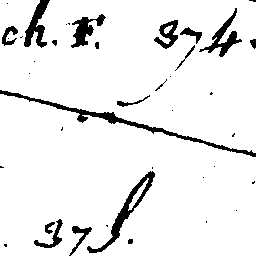 ch. F. 374.
375.